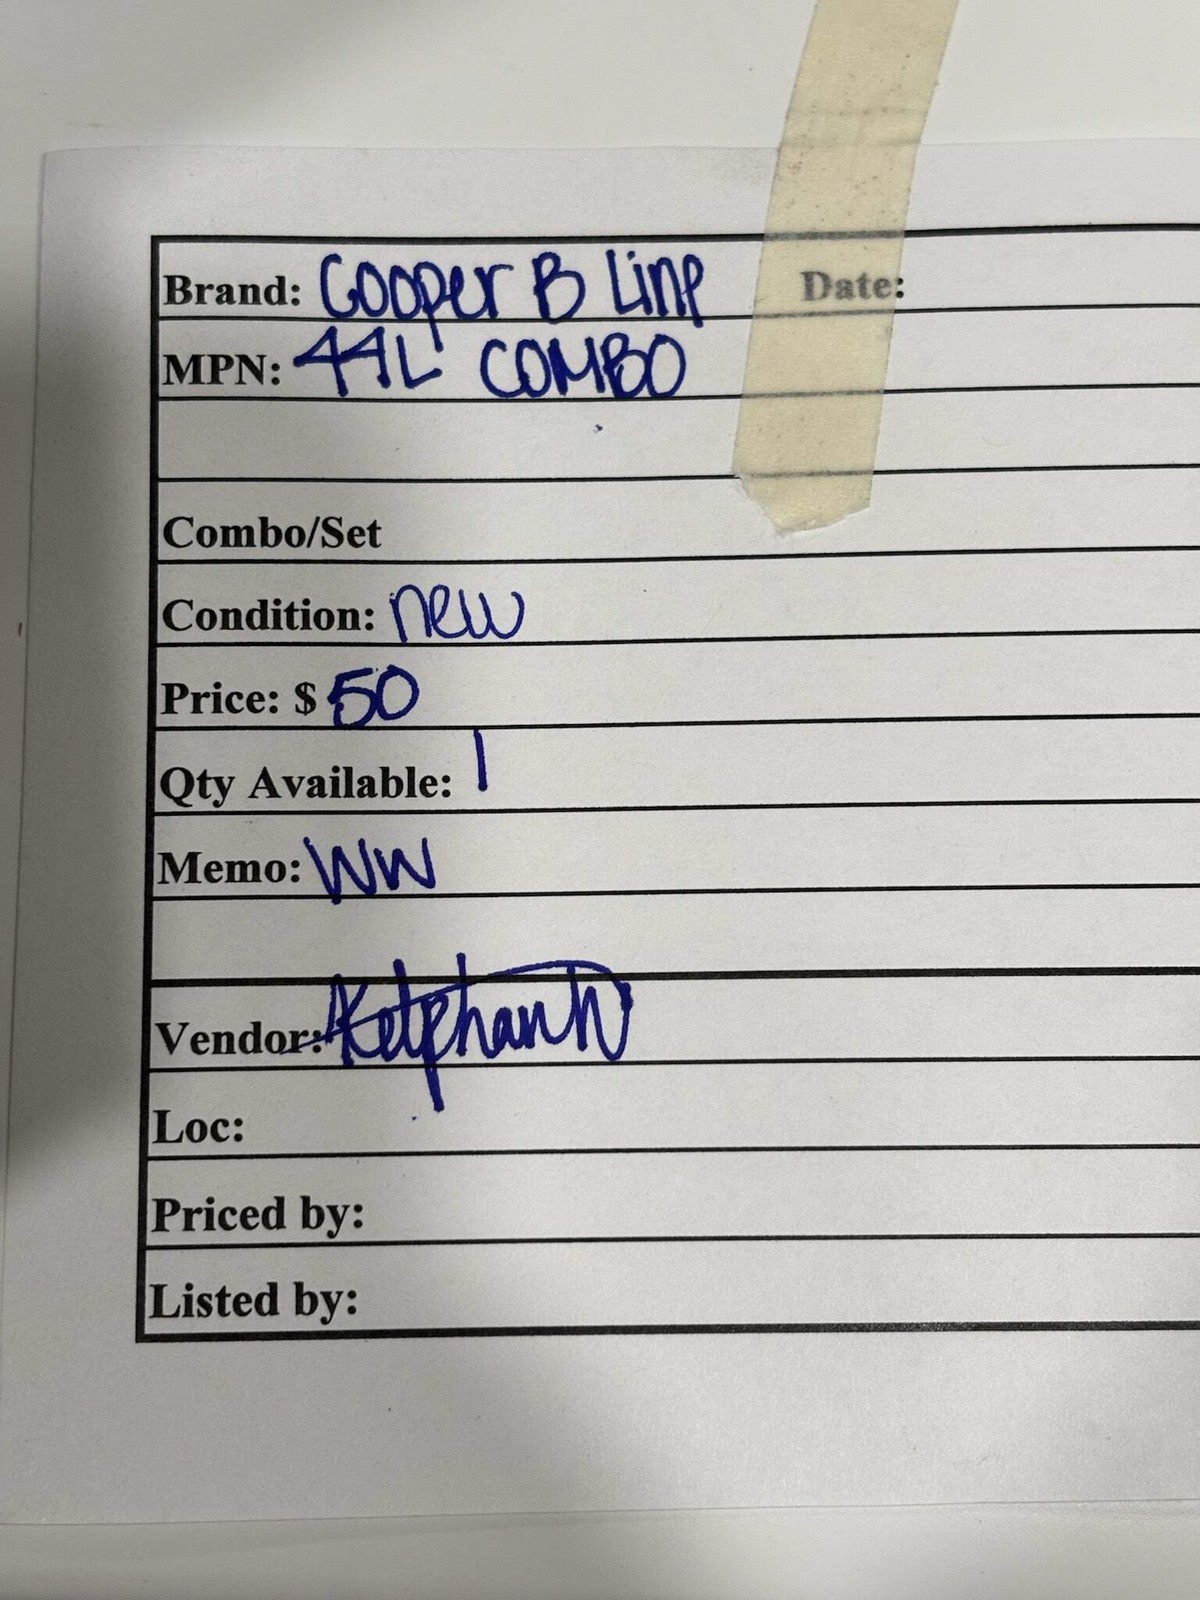 Brand: Cooper B Line Date:
MPN: 44L COMBO
Combo/Set
Condition: new
Price: $ 50
Qty Available: 1
Memo: WW
Vendor:
Loc:
Priced by:
Listed by: